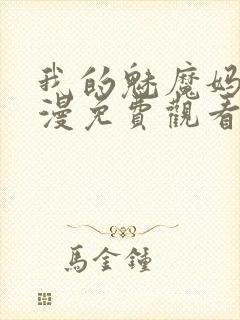 我的魅魔妈
漫免費觀看
馬金鐘